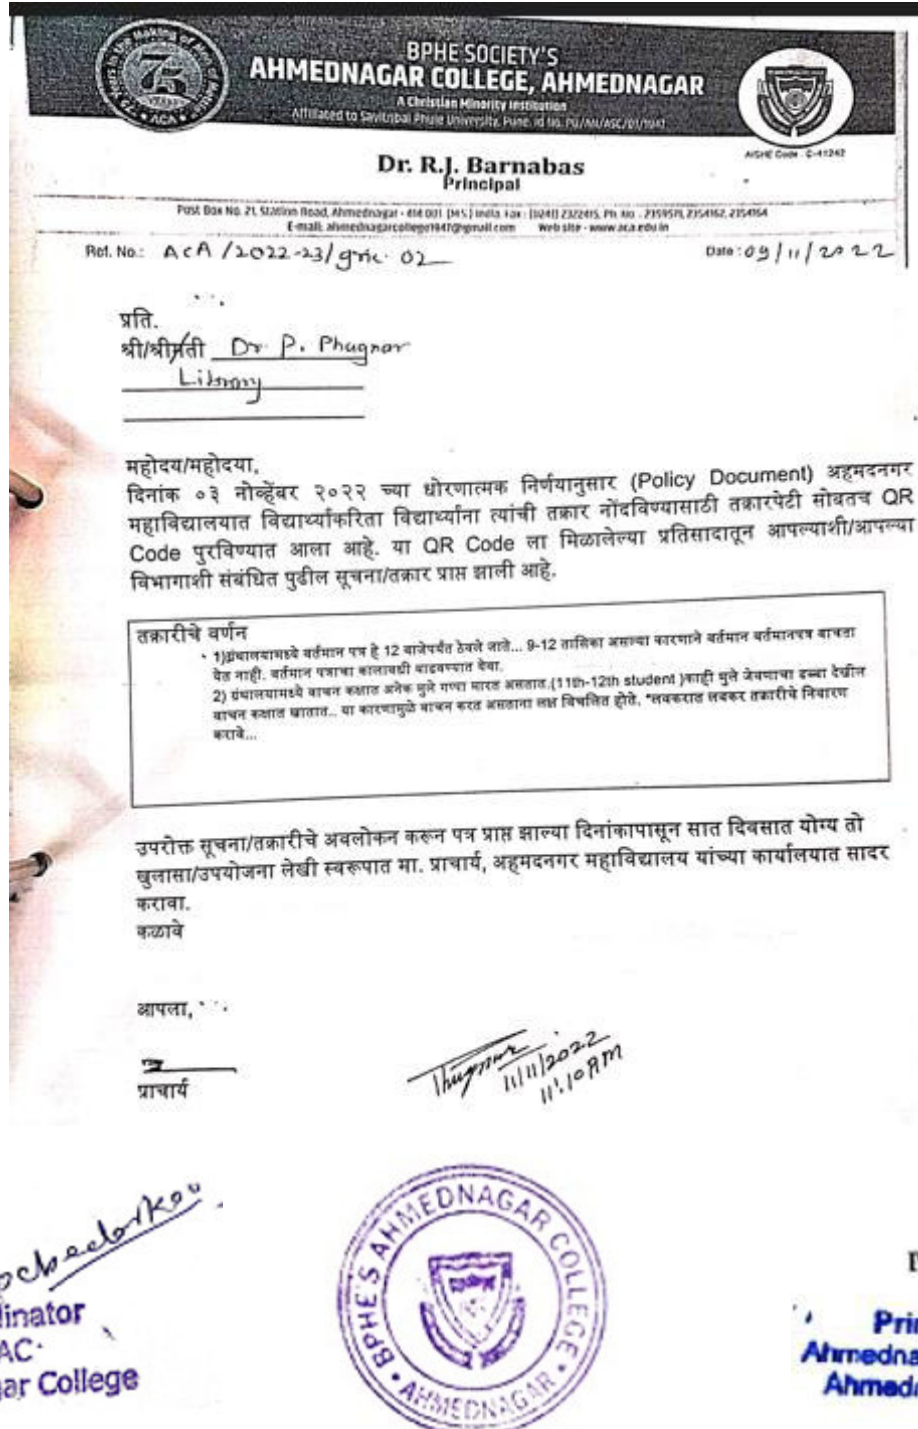 75 Years in the Making of Men of Mettle
75
YEARS
ACA
BPHE SOCIETY'S
AHMEDNAGAR COLLEGE, AHMEDNAGAR
A Christian Minority Institution
Affiliated to Savitribai Phule University, Pune. Id No. PU/AN/ASC/01/1947
AISHE Code - C-41242
Dr. R.J. Barnabas
Principal
Post Box No. 21, Station Road, Ahmednagar - 414 001 (M.S.) India. Fax : (0241) 2322415, Ph. No. - 2359571, 2354162, 2354164
E-mail: ahmednagarcollege1947@gmail.com Web site - www.aca.edu.in
Ref. No.: ACA/2022-23/gric. 02 Date : 09/11/2022
प्रति.
श्री/श्रीमती Dr P. Phugnar
Library
महोदय/महोदया,
दिनांक ०३ नोव्हेंबर २०२२ च्या धोरणात्मक निर्णयानुसार (Policy Document) अहमदनगर
महाविद्यालयात विद्यार्थ्यांकरिता विद्यार्थ्यांना त्यांची तक्रार नोंदविण्यासाठी तक्रारपेटी सोबतच QR
Code पुरविण्यात आला आहे. या QR Code ला मिळालेल्या प्रतिसादातून आपल्याशी/आपल्या
विभागाशी संबंधित पुढील सूचना/तक्रार प्राप्त झाली आहे.
तक्रारीचे वर्णन
• 1)ग्रंथालयामध्ये वर्तमान पत्र हे 12 वाजेपर्यंत ठेवले जाते... 9-12 तासिका असल्या कारणाने वर्तमान वर्तमानपत्र वाचता
येत नाही. वर्तमान पत्राचा कालावधी वाढवण्यात येवा.
2) ग्रंथालयामध्ये वाचन कक्षात अनेक मुले गप्पा मारत असतात.(11th-12th student )काही मुले जेवणाचा डब्बा देखील
वाचन कक्षात खातात.. या कारणामुळे वाचन करत असताना लक्ष विचलित होते. "लवकरात लवकर तक्रारीचे निवारण
करावे...
उपरोक्त सूचना/तक्रारीचे अवलोकन करून पत्र प्राप्त झाल्या दिनांकापासून सात दिवसात योग्य तो
खुलासा/उपयोजना लेखी स्वरूपात मा. प्राचार्य, अहमदनगर महाविद्यालय यांच्या कार्यालयात सादर
करावा.
कळावे
आपला,
प्राचार्य
11/11/2022
11:10 AM
BPHE'S AHMEDNAGAR COLLEGE
AHMEDNAGAR
linator
AC
gar College
Prin
Ahmedna
Ahmedn